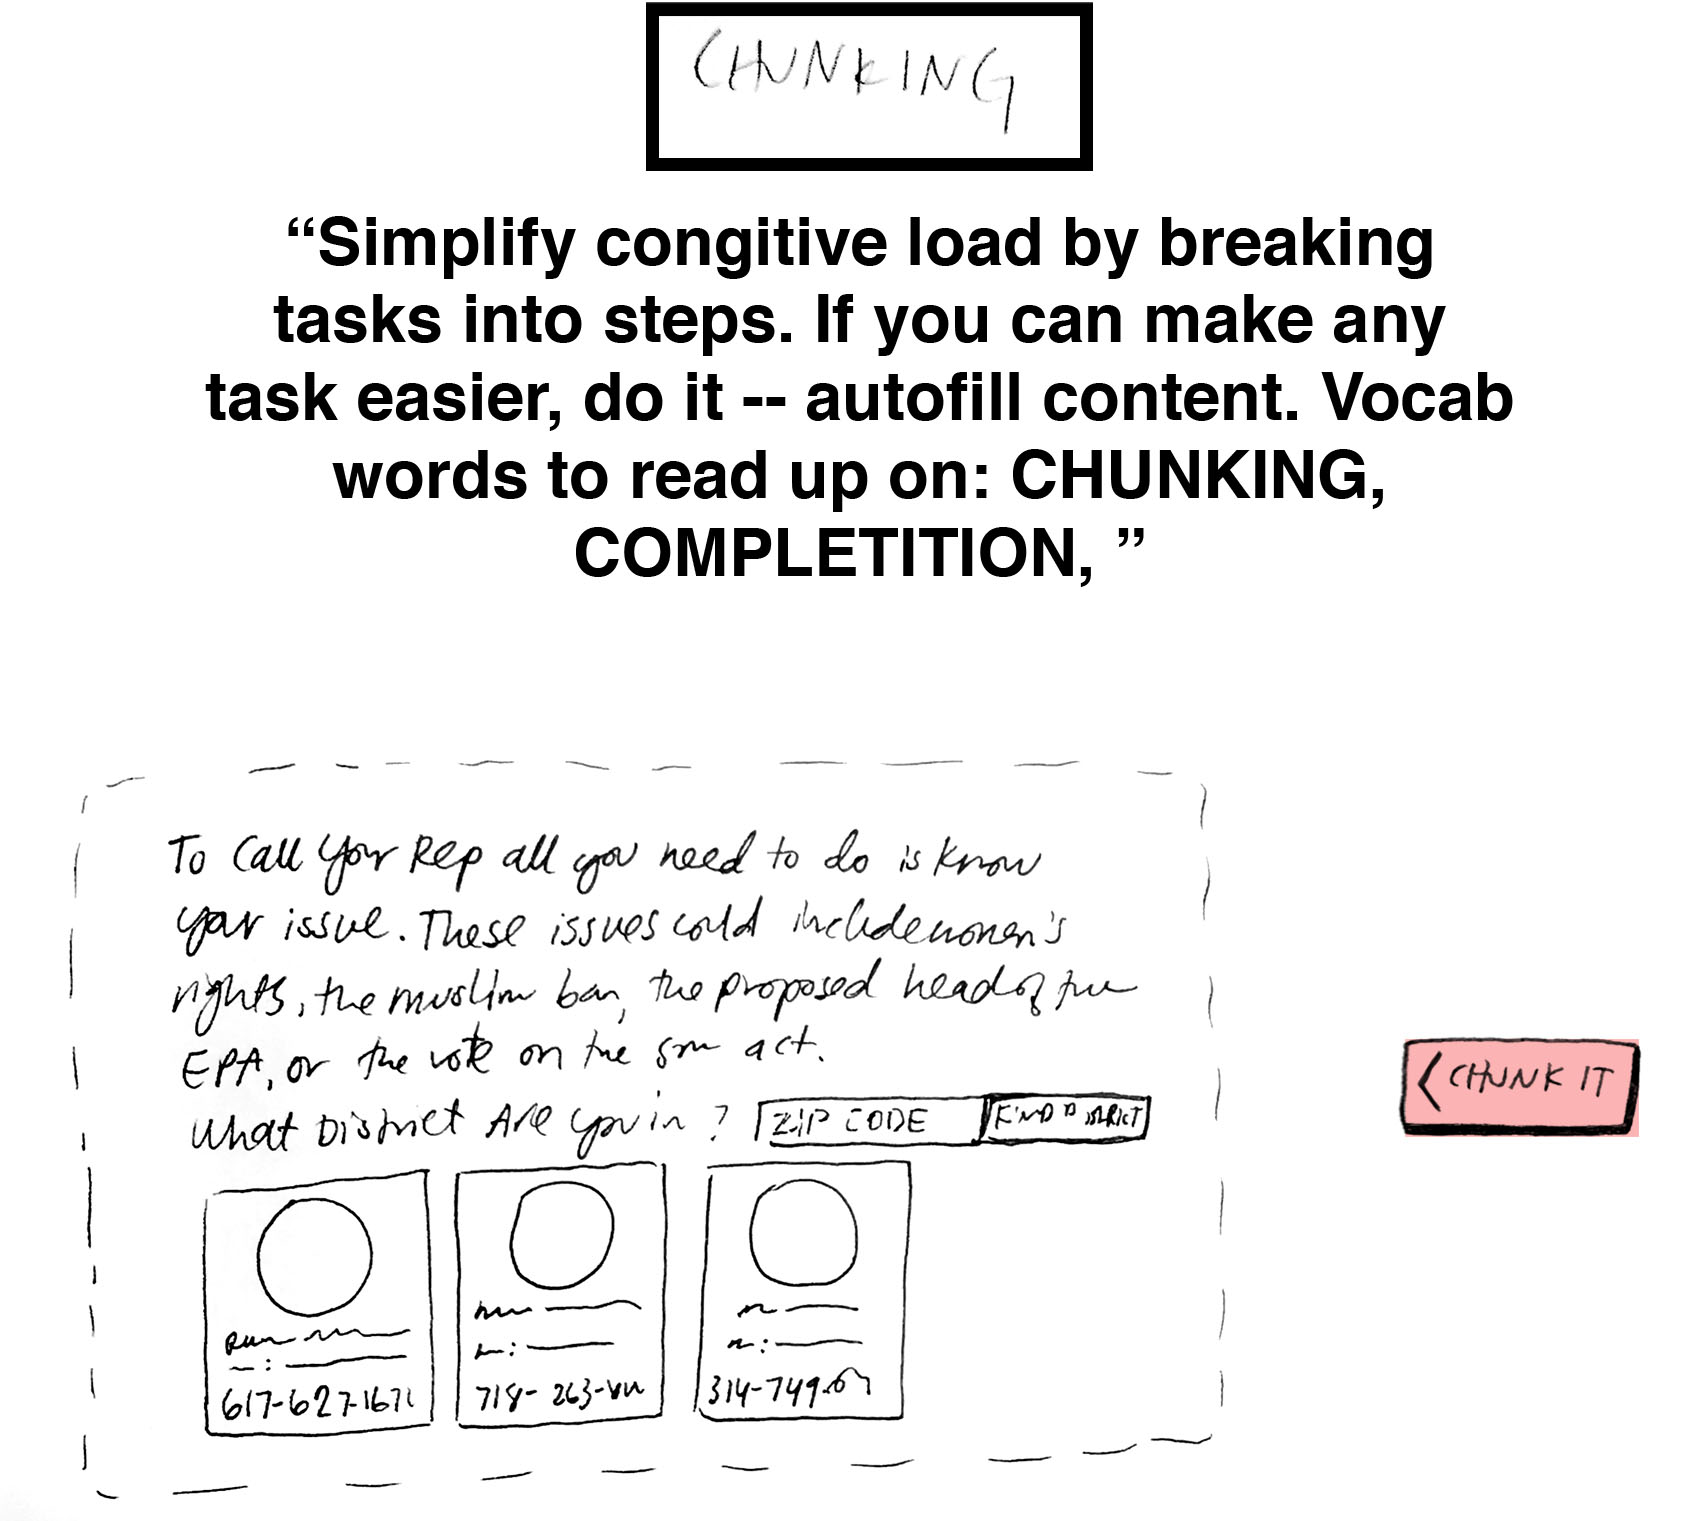 CHUNKING
“Simplify congitive load by breaking
tasks into steps. If you can make any
task easier, do it -- autofill content. Vocab
words to read up on: CHUNKING,
COMPLETITION, ”
To Call Your Rep all you need to do is know
your issue. These issues could include women's
rights, the muslim ban, the proposed head of the
EPA, or the vote on the act.
What District Are you in? ZIP CODE FIND DISTRICT
< CHUNK IT
617-627-1671 718-263- 314-749-